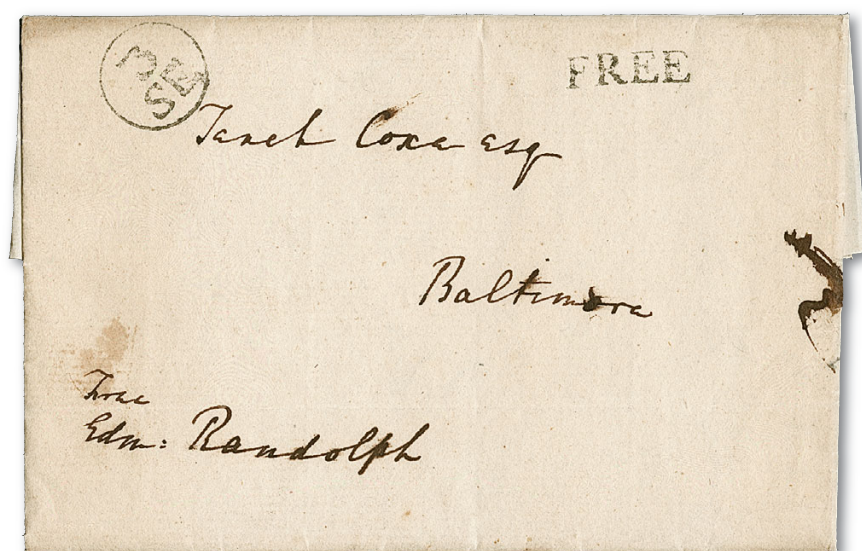 3
SE
FREE
Tench Coxe esq
Baltimore
Free
Edm: Randolph